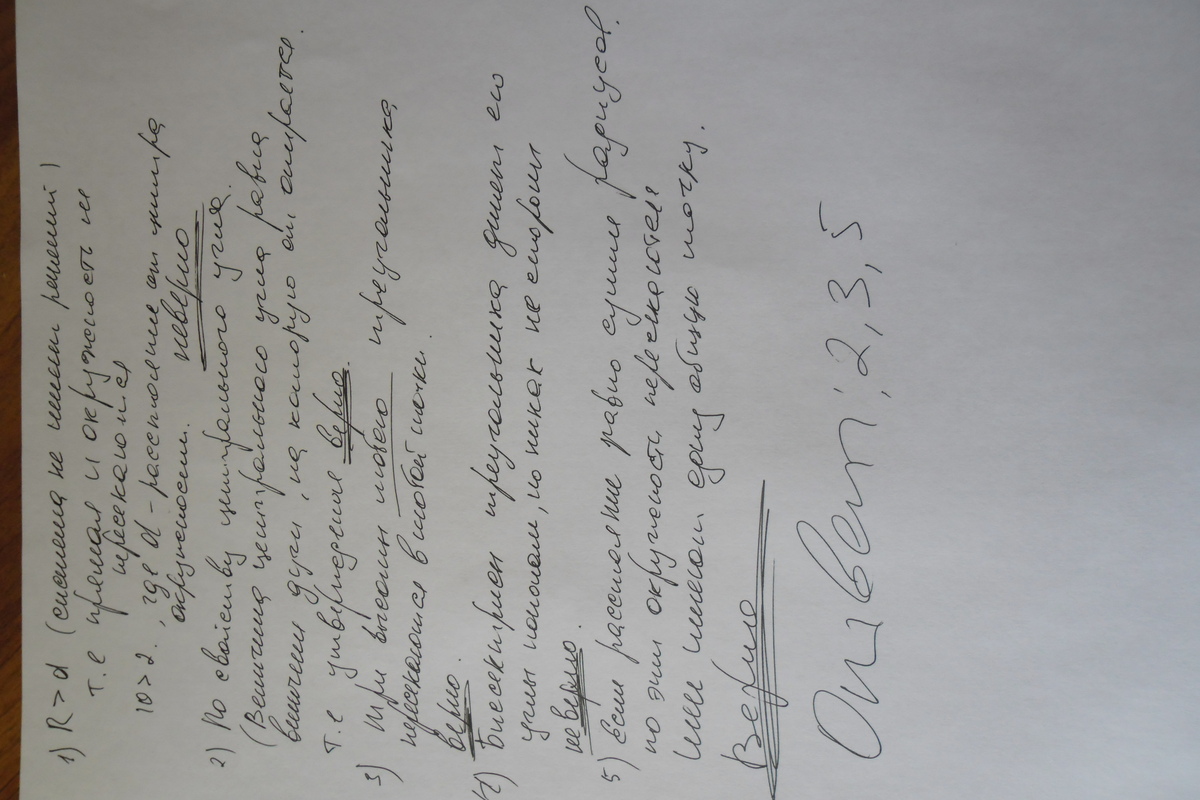 1) R > d (система не имеет решений)
т.е прямая и окружность не
пересекаются
10 > 2., где d - расстояние от центра
окружности. неверно
2) По свойству центрального угла.
(Величина центрального угла равна
величине дуги, на которую он опирается.
т.е утверждение верно.
3) Три высоты любого треугольника
пересекаются в одной точки.
верно.
4) Биссектриса треугольника делит его
углы пополам, но никак не сторон
неверно.
5) Если расстояние равно сумме радиусов.
то эти окружности пересекаются
или имеют одну общую точку.
Верно
Ответ: 2, 3, 5